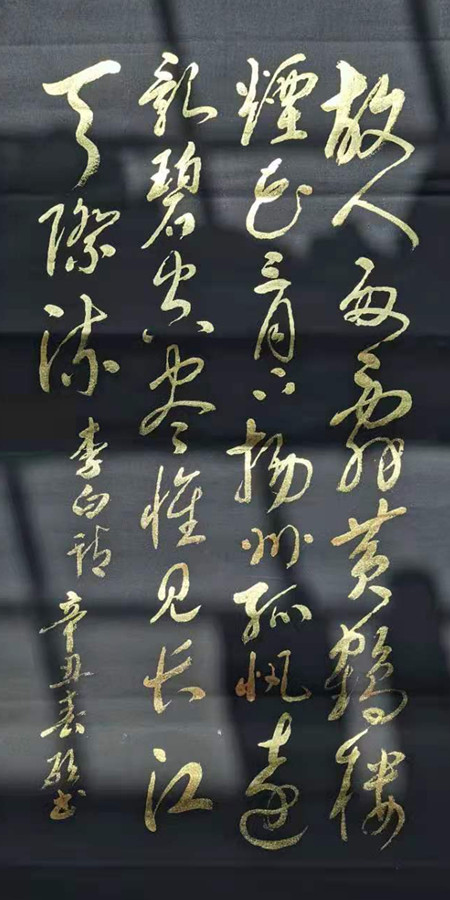 故人西辞黄鶴楼
煙花三月下揚州孤帆遠
影碧空尽惟见长江
天際流
李白詩 辛丑春 书